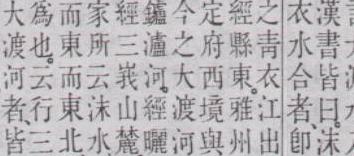 漢書皆曰沫
衣水合者卽
之青衣江出
經縣東雅州
定府西境與
今之大渡河
鑪瀘河經曬
經三峩山麓
家所云沫水
而東而東北
爲也云行三
大渡河者皆